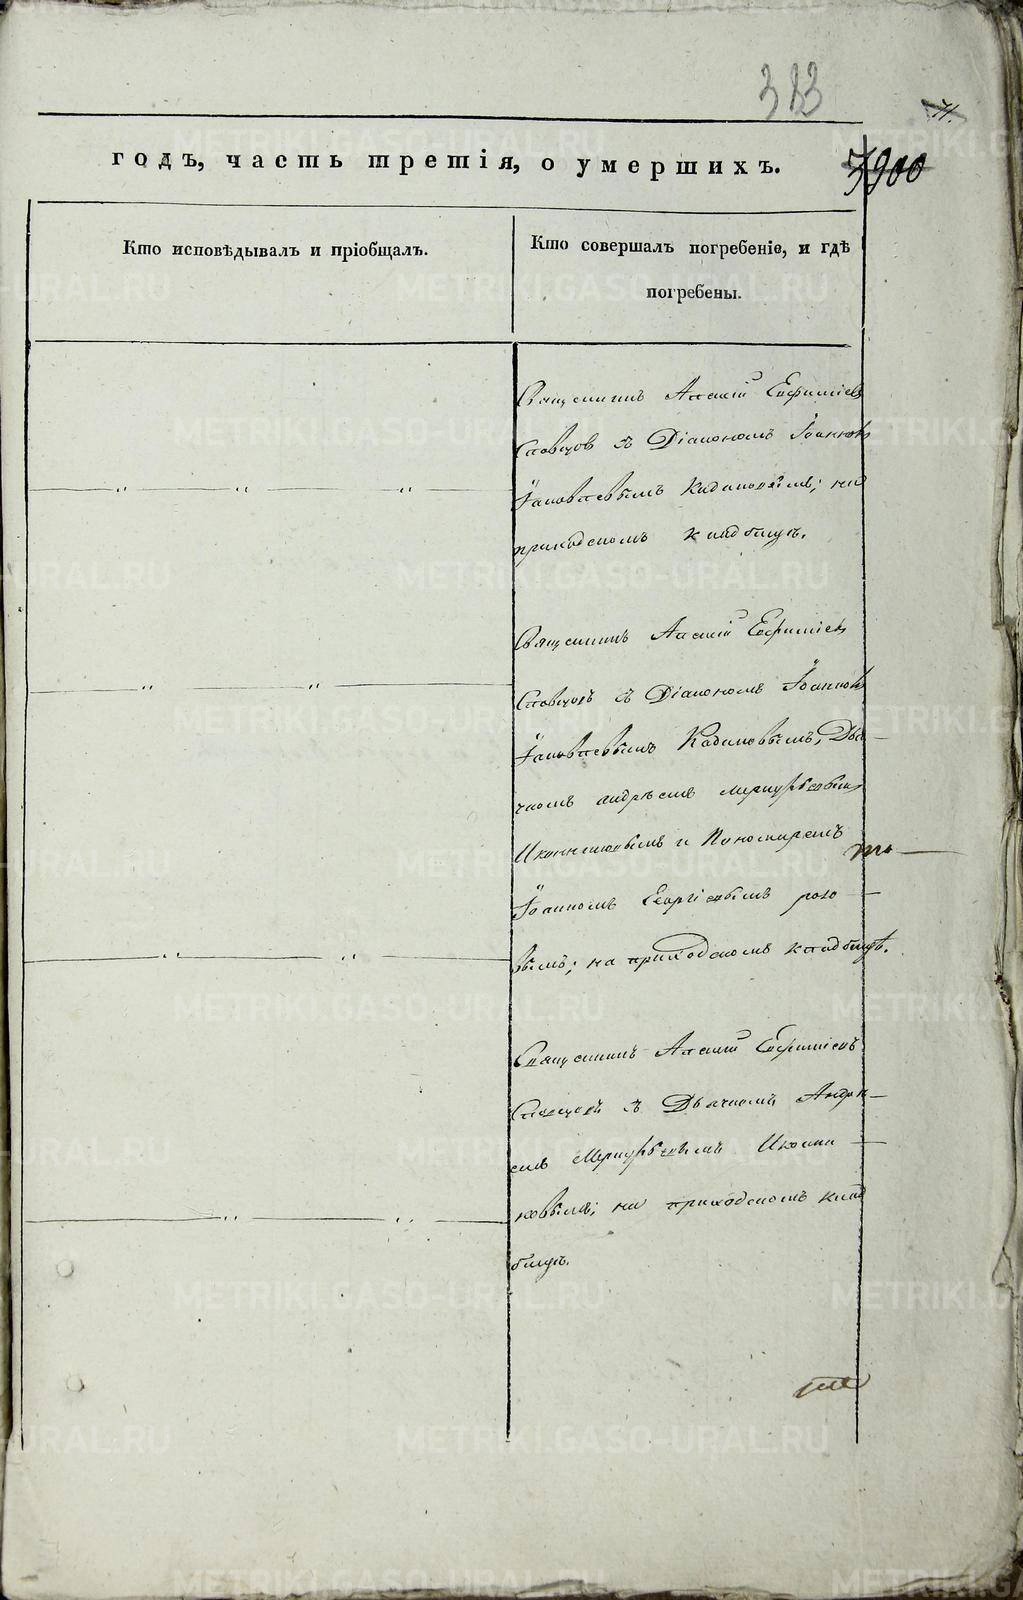 313
71.
годъ, часть третія, о умершихъ.
900
Кто исповѣдывалъ и пріобщалъ.
Кто совершалъ погребеніе, и гдѣ
погребены.
Священникъ Алексій Евфиміевъ
Словцов съ Діакономъ Іоанномъ
Іаковлевымъ Кадамовымъ; на
приходскомъ кладбищѣ.
Священникъ Алексій Евфиміевъ
Словцовъ съ Діакономъ Іоанномъ
Іаковлевымъ Кадамовымъ, Дья-
чкомъ Андреемъ Меркурьевым
Иконниковымъ и Пономаремъ
Іоанномъ Георгіевымъ
вымъ; на приходскомъ кладбищѣ.
Священникъ Алексій Евфиміевъ
Словцовъ съ Дьячкомъ Андре-
емъ Меркурьевымъ Иконни-
ковымъ; на приходскомъ клад
бищѣ.
METRIKI.GASO-URAL.RU